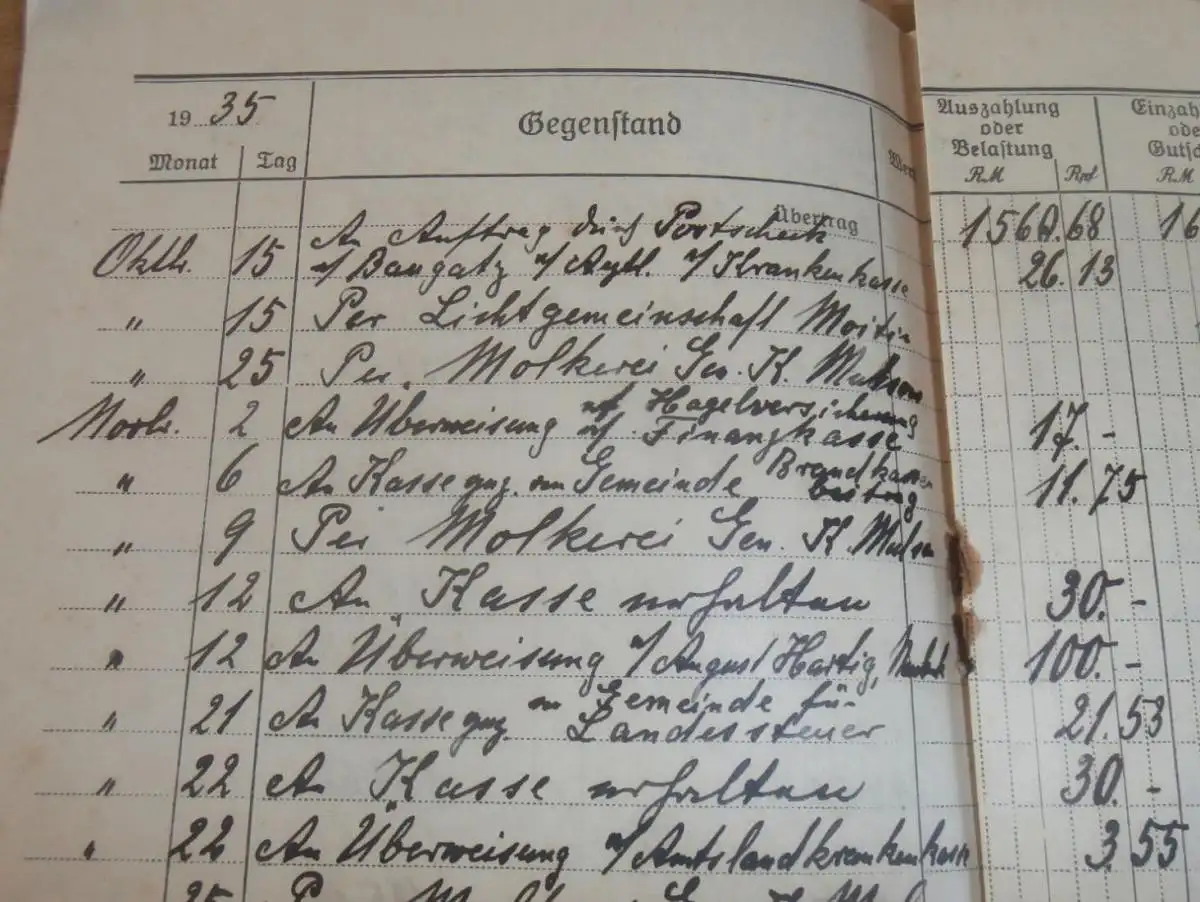 19 35 Gegenstand Auszahlung oder Belastung Einzah
Monat Tag RM Rpf RM
Übertrag 68 16
An Auftrag durch Postscheck
15 a/ Baugatz a/ a/ Krankenkasse 26.13
" 15 Per Lichtgemeinschaft
" 25 Per Molkerei Gen. K.
a/ Hagelversicherung
2 An Überweisung a/ Finanzkasse 17.-
" 6 An Kasse gez. an Gemeinde Brandkassenbeitrag 11.75
" 9 Per Molkerei Gen. K.
" 12 An Kasse erhalten 30.-
" 12 An Überweisung a/ August Hartig, 100.-
" 21 An Kasse gez. an Gemeinde für Landessteuer 21.53
" 22 An Kasse erhalten 30.-
" 22 An Überweisung a/ Amtslandkrankenkasse 3.55
25